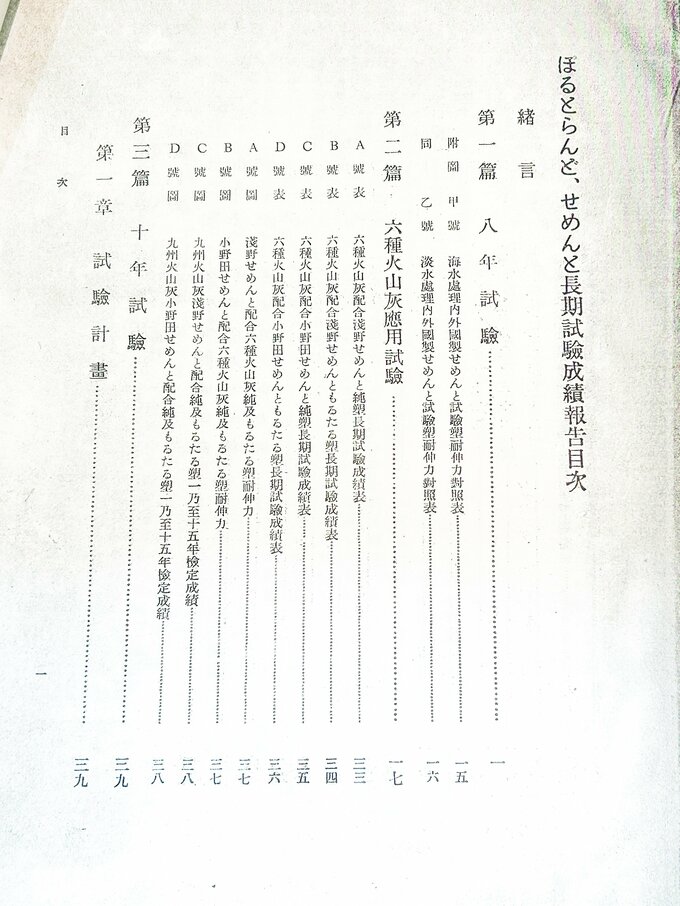 ぽるとらんど、せめんと長期試驗成績報告目次
緒言
第一篇 八年試驗……一
附圖 甲號 海水處理内外國製せめんと試驗塑耐伸力對照表……一五
同 乙號 淡水處理内外國製せめんと試驗塑耐伸力對照表……一六
第二篇 六種火山灰應用試驗……一七
A號表 六種火山灰配合淺野せめんと純塑長期試驗成績表……三三
B號表 六種火山灰配合淺野せめんともるたる塑長期試驗成績表……三四
C號表 六種火山灰配合小野田せめんと純塑長期試驗成績表……三五
D號表 六種火山灰配合小野田せめんともるたる塑長期試驗成績表……三六
A號圖 淺野せめんと配合六種火山灰純及もるたる塑耐伸力……三七
B號圖 小野田せめんと配合六種火山灰純及もるたる塑耐伸力……三七
C號圖 九州火山灰淺野せめんと配合純及もるたる塑一乃至十五年檢定成績……三八
D號圖 九州火山灰小野田せめんと配合純及もるたる塑一乃至十五年檢定成績……三八
第三篇 十年試驗……三九
第一章 試驗計畫……三九
目次
一